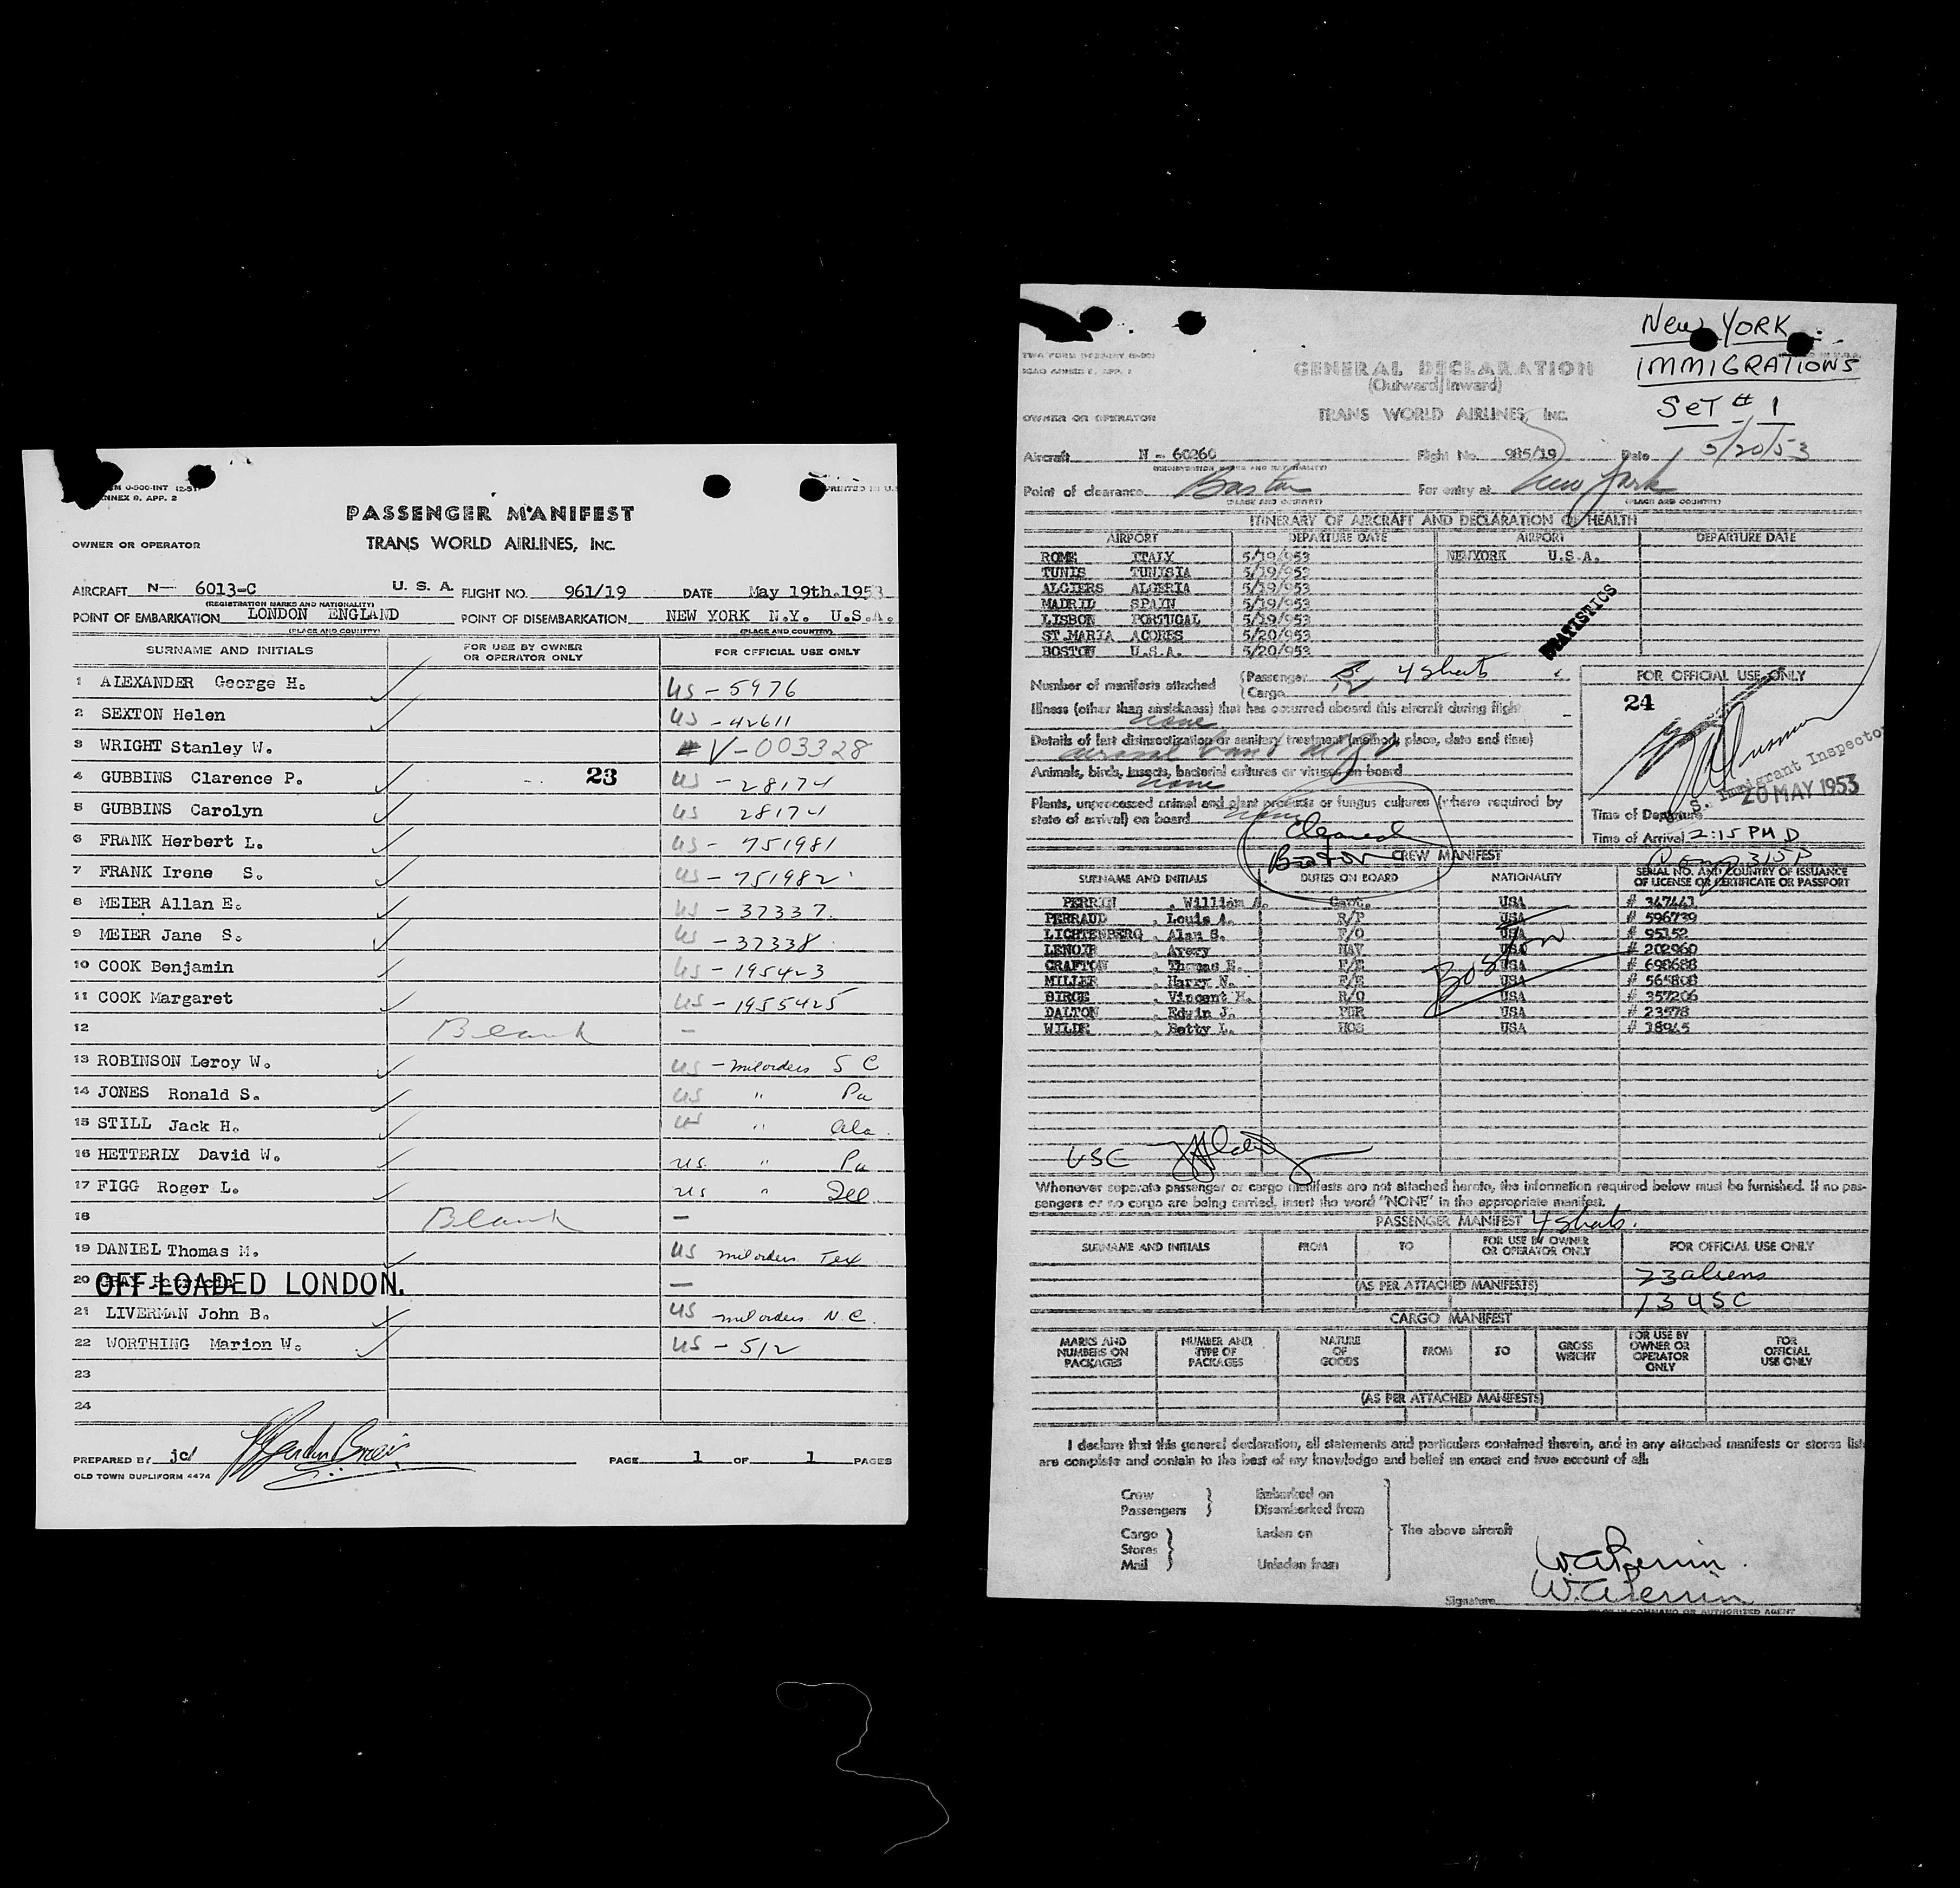 ANNEX 9. APP. 2
PASSENGER MANIFEST
OWNER OR OPERATOR TRANS WORLD AIRLINES, INC.
AIRCRAFT N- 6013-C U. S. A. FLIGHT NO. 961/19 DATE May 19th.1953
(REGISTRATION MARKS AND NATIONALITY)
POINT OF EMBARKATION LONDON ENGLAND POINT OF DISEMBARKATION NEW YORK N.Y. U.S.A.
(PLACE AND COUNTRY) (PLACE AND COUNTRY)
SURNAME AND INITIALS FOR USE BY OWNER OR OPERATOR ONLY FOR OFFICIAL USE ONLY
1 ALEXANDER George H. US - 5976
2 SEXTON Helen US - 42611
3 WRIGHT Stanley W. V-003328
4 GUBBINS Clarence P. 23 US - 28174
5 GUBBINS Carolyn US 28174
6 FRANK Herbert L. US - 751981
7 FRANK Irene S. US - 751982
8 MEIER Allan E. US - 37337
9 MEIER Jane S. US - 37338
10 COOK Benjamin US - 195423
11 COOK Margaret US - 1955425
12 Blank -
13 ROBINSON Leroy W. US - mil orders S C
14 JONES Ronald S. US " Pa
15 STILL Jack H. US " Ala
16 HETTERLY David W. US " Pa
17 FIGG Roger L. US "
18 Blank -
19 DANIEL Thomas M. US mil orders Tex
20 OFF-LOADED LONDON. -
21 LIVERMAN John B. US mil orders N.C.
22 WORTHING Marion W. US - 512
23
24
PREPARED BY jc/ PAGE 1 OF 1 PAGES
OLD TOWN DUPLIFORM 4474
New YORK
IMMIGRATIONS
SET # 1
GENERAL DECLARATION
(Outward/Inward)
OWNER OR OPERATOR TRANS WORLD AIRLINES, INC.
Aircraft N - 60260 Flight No. 985/19 Date 5/20/53
(REGISTRATION MARKS AND NATIONALITY)
Point of clearance Boston For entry at New York
(PLACE AND COUNTRY) (PLACE AND COUNTRY)
ITINERARY OF AIRCRAFT AND DECLARATION OF HEALTH
AIRPORT DEPARTURE DATE AIRPORT DEPARTURE DATE
ROME ITALY 5/19/953 NEWYORK U.S.A.
TUNIS TUNISIA 5/19/953
ALGIERS ALGERIA 5/19/953
MADRID SPAIN 5/19/953
LISBON PORTUGAL 5/19/953
ST.MARIA ACORES 5/20/953
BOSTON U.S.A. 5/20/953
STATISTICS
Number of manifests attached (Passenger 4 sheets
(Cargo
FOR OFFICIAL USE ONLY
24
Illness (other than airsickness) that has occurred aboard this aircraft during flight
none
Details of last disinsectization or sanitary treatment (method, place, date and time)
Animals, birds, insects, bacterial cultures or viruses on board
none
Plants, unprocessed animal and plant products or fungus cultures (where required by
state of arrival) on board none
Immigrant Inspector
20 MAY 1953
Time of Departure
Time of Arrival 2:15 PM D
Cleared
Boston
CREW MANIFEST
SURNAME AND INITIALS DUTIES ON BOARD NATIONALITY SERIAL NO. AND COUNTRY OF ISSUANCE OF LICENSE OR CERTIFICATE OR PASSPORT
PERRIN , William A. Capt. USA # 347441
PERRAUD , Louis A. R/P USA # 596739
LICHTENBERG , Alan S. F/O USA # 95152
LENOIR , Avery NAV USA # 202960
GRAFTON , Thomas E. F/E USA # 698688
MILLER , Harry N. F/E USA # 565808
BIRGE , Vincent H. R/O USA # 357206
DALTON , Edwin J. PUR USA # 23578
WILDE , Betty L. HOS USA # 18945
Boston
USC
Whenever separate passenger or cargo manifests are not attached hereto, the information required below must be furnished. If no pas-
sengers or no cargo are being carried, insert the word "NONE" in the appropriate manifest.
PASSENGER MANIFEST 4 sheets.
SURNAME AND INITIALS FROM TO FOR USE BY OWNER OR OPERATOR ONLY FOR OFFICIAL USE ONLY
23 aliens
(AS PER ATTACHED MANIFESTS)
13 USC
CARGO MANIFEST
MARKS AND NUMBERS ON PACKAGES NUMBER AND TYPE OF PACKAGES NATURE OF GOODS FROM TO GROSS WEIGHT FOR USE BY OWNER OR OPERATOR ONLY FOR OFFICIAL USE ONLY
(AS PER ATTACHED MANIFESTS)
I declare that this general declaration, all statements and particulars contained therein, and in any attached manifests or stores list
are complete and contain to the best of my knowledge and belief an exact and true account of all:
Crew Embarked on
Passengers Disembarked from
Cargo Laden on The above aircraft
Stores
Mail Unladen from
W.A. Perrin
W.A. Perrin
Signature